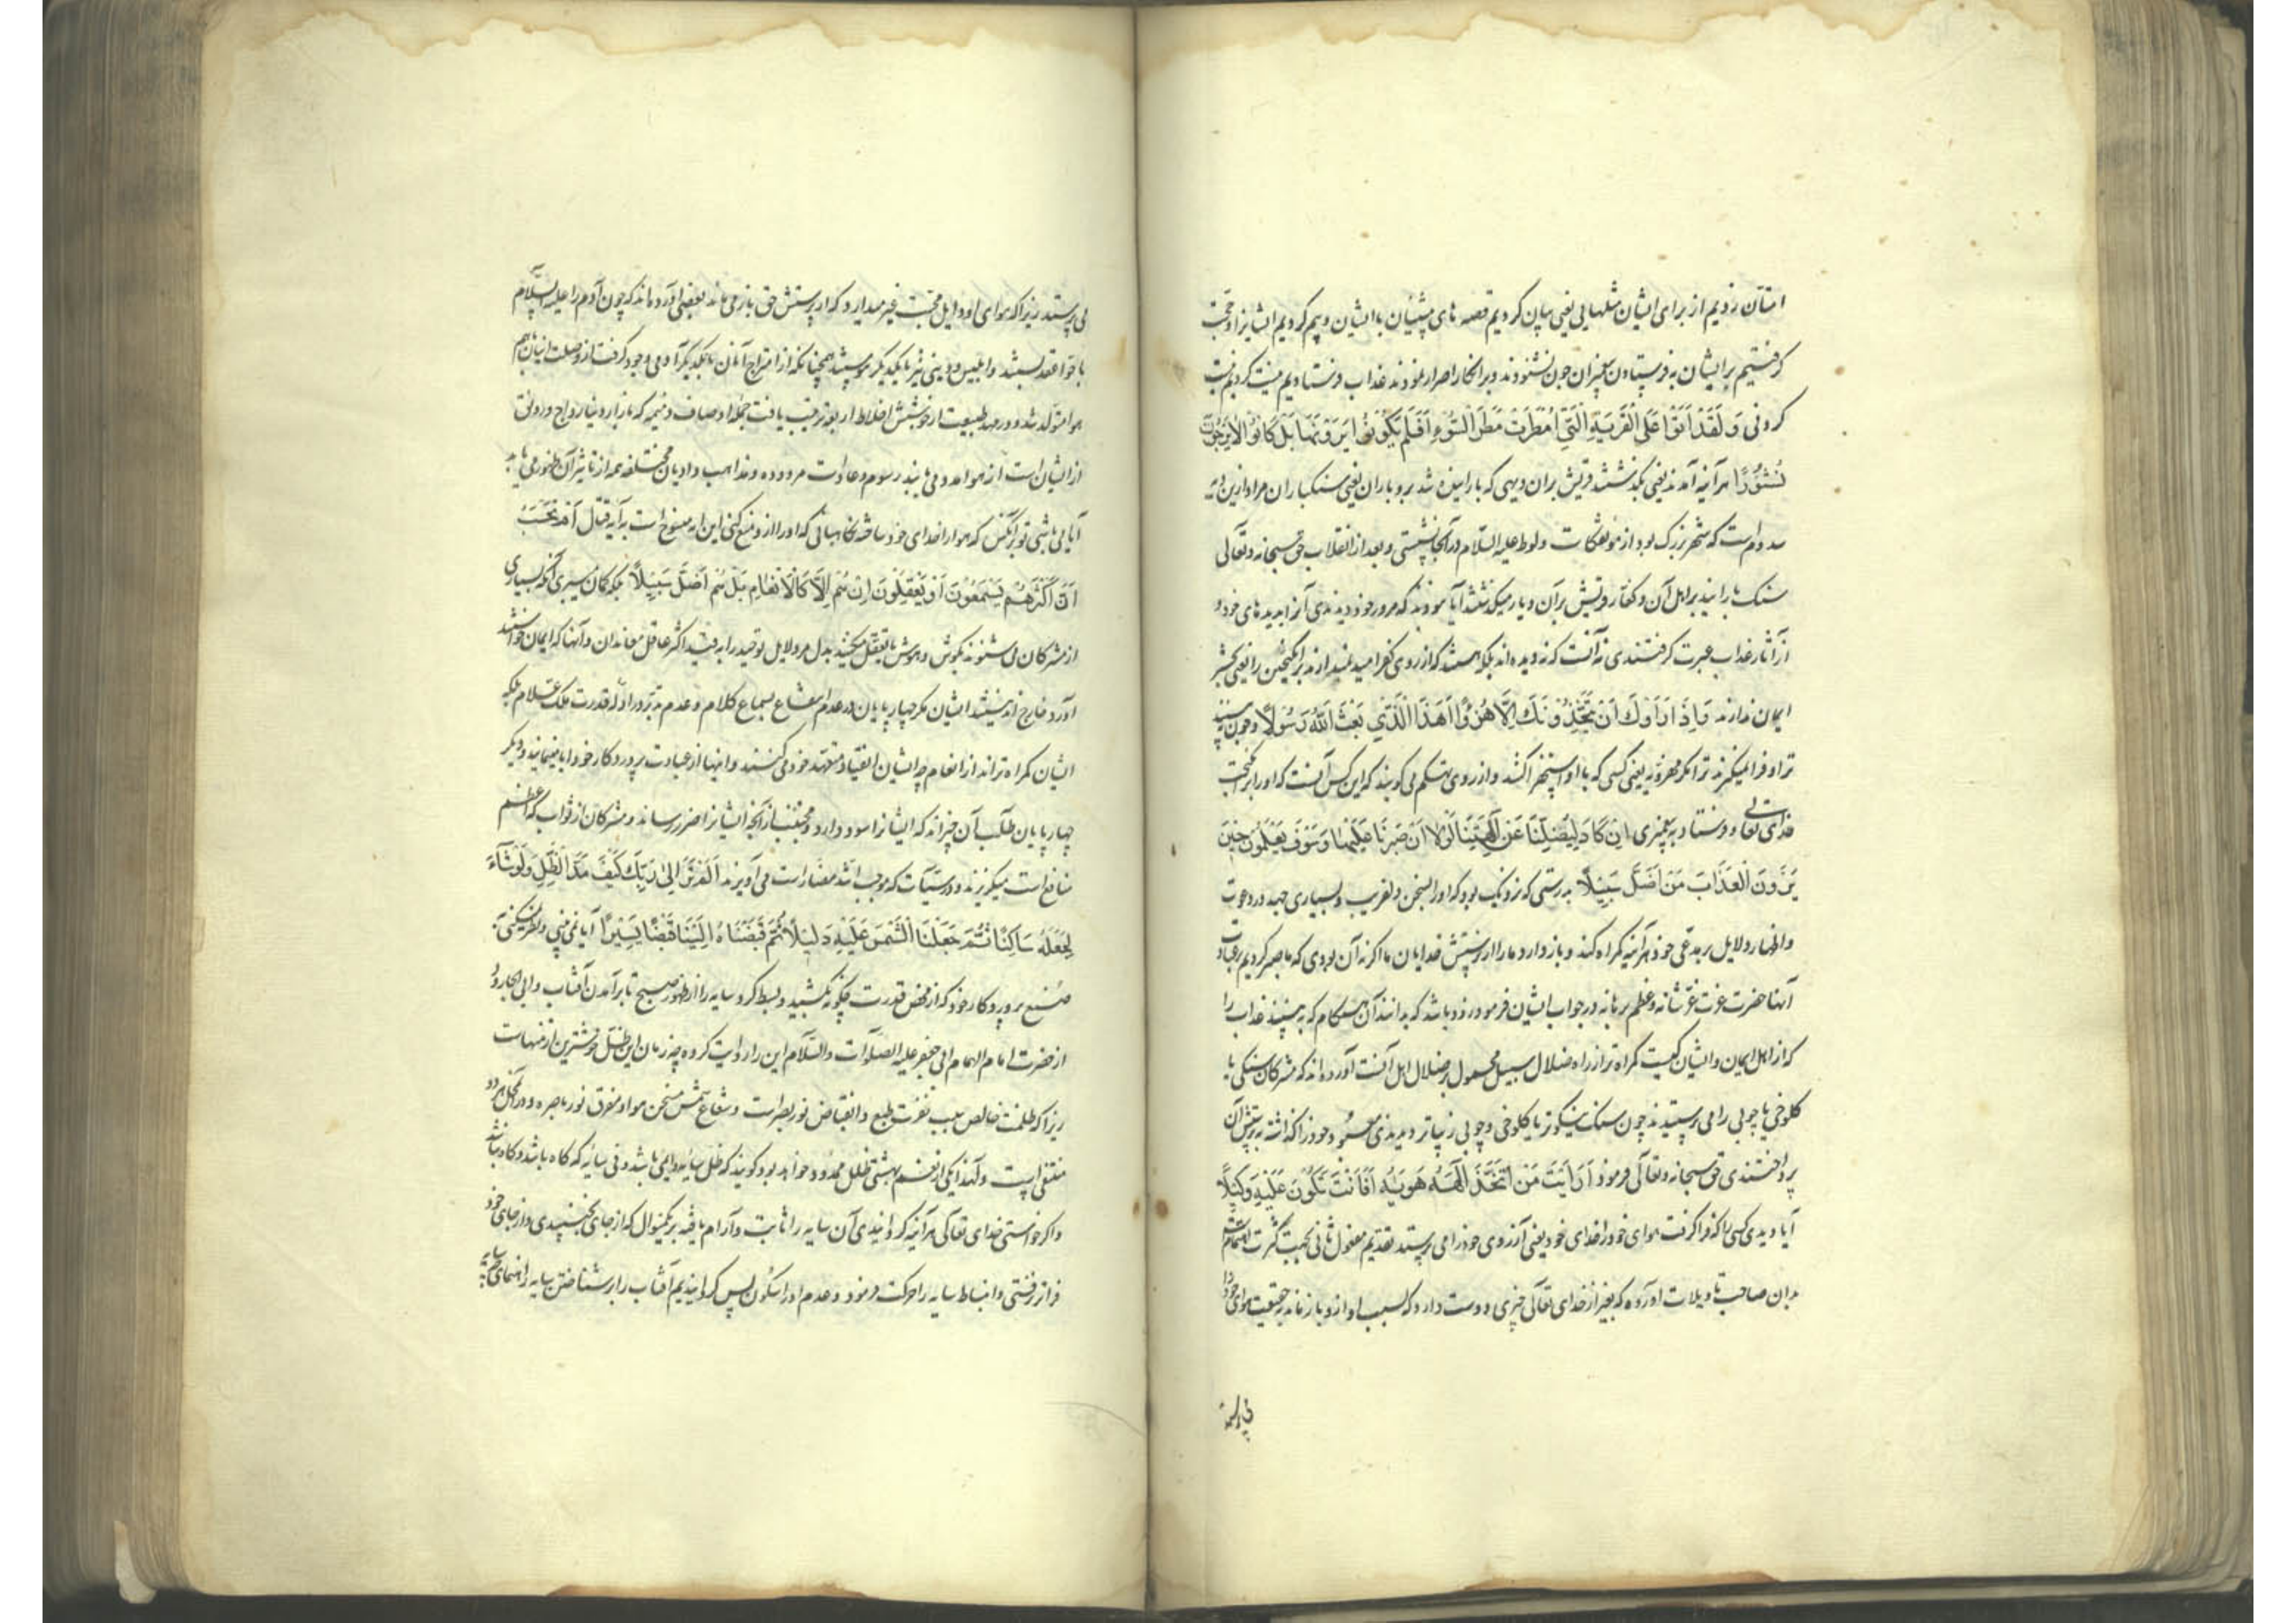 امتان زدیم از برای ایشان مثلهایی یعنی بیان کردیم قصه های پیشینیان با ایشان و بیم کردیم ایشانرا و حجت
گرفتیم بر ایشان به فرستادن پیغمبران چون نشنودند و بر انکار اصرار نمودند عذاب فرستادیم نیست کردیم نیست
کردنی وَلَقَدْ اَتَوْا عَلَی الْقَرْیَةِ الَّتِی اُمْطِرَتْ مَطَرَ السَّوْءِ اَفَلَمْ یَکُونُوا یَرَوْنَهَا بَلْ کَانُوا لَا یَرْجُونَ
نُشُورًا هر آینه آمدند یعنی بگذشتند قریش بران دیهی که بارانیده شد برو باران یعنی سنکباران مراد ازین قریه
سدوم است که شهر بزرک بود از مؤتفکات و لوط علیه السلام در آنجا نشستی و بعد از انقلاب حق سبحانه و تعالی
سنک بارانید بر اهل آن و کفار قریش بر آن دیار میکذشتند آیا نبودند که در مرور خود دیدندی آنرا بدیدهای خود و
از آثار عذاب عبرت کرفتندی نه آنست که ندیده اند بلکه هستند که از روی کفر امید نمیدارند برانکیختن را یعنی بحشر
ایمان ندارند وَاِذَا رَاَوْكَ اَنْ یَتَّخِذُونَكَ اِلَّا هُزُوًا اَهَذَا الَّذِی بَعَثَ اللّٰهُ رَسُولًا و چون بینند
ترا و فرا نمیکیرند ترا مکر مهزوّ به یعنی کسی که با او استهزا کنند و از روی تهکم می کویند که این کس آنست که او را برانکیخت
خدای تعالی و فرستاد به پیغمبری اِنْ کَادَ لَیُضِلُّنَا عَنْ آلِهَتِنَا لَوْلَا اَنْ صَبَرْنَا عَلَیْهَا وَسَوْفَ یَعْلَمُونَ حِینَ
یَرَوْنَ الْعَذَابَ مَنْ اَضَلُّ سَبِیلًا به رستی که نزدیک بود که او بسخن دلفریب و بسیاری جهد در دعوت
و اظهار دلایل بر مدعی خود هر آینه کمراه کند و باز دارد ما را از پرستش خدایان ما اکر نه آن بودی که ما صبر کردیم بر عبادت
آنها حضرت عزت عزّ شانه و عظم برهانه در جواب ایشان فرمود زود باشد که بدانند آن هنکام که به بینند عذاب را
که از اهل ایمان و ایشان کیست کمراه تر از راه ضلال سبیل محمول بر ضلال اهل آنست آورده اند که مشرکان سنکی یا
کلوخی یا چوبی را می پرستیدند چون سنک نیکوتر یا کلوخی و چوبی زیباتر دیدندی معبود خود را کذاشته به پرستش آن
پرداختندی حق سبحانه و تعالی فرمود اَرَاَیْتَ مَنِ اتَّخَذَ اِلٰهَهُ هَوٰیهُ اَفَاَنْتَ تَکُونُ عَلَیْهِ وَکِیلًا
آیا دیدی کسی را که فرا کرفت هوای خود را خدای خود یعنی آرزوی خود را می پرستد تقدیم مفعول ثانی بجهت کثرت اهتمامست
بدان صاحب تاویلات آورده که بغیر از خدای تعالی چیزی دوست دارد که بسبب او ازو باز ماند به حقیقت هوای خود را
می پرستد زیرا که هوای او و ایل محبت غیر میدارد که از پرستش حق باز می ماند بعضی آورده اند که چون آدم را علیه السلام
با حوا عقد بستند و ابلیس و دینی نیز با یکدیکر پیوستند همچنانکه از امتزاج آنان با یکدیکر آدمی وجود کرفت از وصلت اینان هم
هوا متولد شد و در مهد طبیعت از خوشش اخلاط اربعه تربیت یافت جمله اوصاف ذمیمه که بازار دنیا رواج و رونق
از ایشان است از هوا مدد می یابند رسوم و عادات مردوده و مذاهب و ادیان مختلفه همه از تاثیر آن ظهور می یابد
آیا می باشی تو بر آنکس که هوا را خدای خود ساخته نکاهبانی که او را از و منع کنی این آیه منسوخ است به آیه قتال اَمْ تَحْسَبُ
اَنَّ اَکْثَرَهُمْ یَسْمَعُونَ اَوْ یَعْقِلُونَ اِنْ هُمْ اِلَّا کَالْاَنْعَامِ بَلْ هُمْ اَضَلُّ سَبِیلًا بلکه کمان میبری آنکه بسیاری
از مشرکان می شنوند بکوش و هوش یا تعقل میکنند بدل مر دلایل توحید را به قید اکثر عاقل معاندان و آنها که ایمان خواستند
آورد خارج اند نیستند ایشان مکر چهارپایان در عدم انتفاع بسماع کلام و عدم تدبر در ادله قدرت ملک علام بلکه
ایشان کمراه تراند از انعام چه ایشان انقیاد متعهد خود می کنند و اینها از عبادت پروردکار خود ابا مینمایند و دیکر
چهارپایان طلب آن چیز اند که ایشانرا سود دارد و مجتنب از آنچه ایشانرا ضرر رساند و مشرکان از ثواب که اعظم
منافع است میکریزند و در سیّئات که موجب اشد مضار است می آویزند اَلَمْ تَرَ اِلٰی رَبِّكَ کَیْفَ مَدَّ الظِّلَّ وَلَوْ شَآءَ
لَجَعَلَهُ سَاکِنًا ثُمَّ جَعَلْنَا الشَّمْسَ عَلَیْهِ دَلِیلًا ثُمَّ قَبَضْنَاهُ اِلَیْنَا قَبْضًا یَسِیرًا آیا نمی بینی و نظر نمیکنی به
صنع پروردکار خود که از محض قدرت چکونه بکشید و بسط کرد سایه را از ظهور صبح تا بر آمدن آفتاب و ابی الجارود
از حضرت امام الهمام ابی جعفر علیه الصلوات والسلام این را روایت کرده چه زمان این ظل خوشترین ازمنهاست
زیرا که ظلمت خالص سبب نفرت طبع و انقباض نور بصر است و شعاع شمس مسخن هوا و مفرق نور باصره و در آن محل هر دو
منتفی است و لهذا یکی از نعیم بهشتی ظل ممدود خواهد بود و کویند که ظل سایه دایمی باشد و فی سایه که کاه باشد و کاه نباشد
و اکر خواستی خدای تعالی هر آینه کردانیدی آن سایه را ثابت و آرام یافته بر یکمنوال که از جای نجنبیدی و از جای خود
فراتر نرفتی و انبساط سایه را حرکت فرمود و عدم او را سکون پس کردانیدیم آفتاب را بر شناختن سایه راهنمای چه سایه